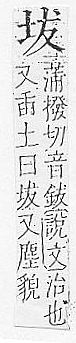 坺
蒲撥切音鈸說文治也
又臿土曰坺又塵貌